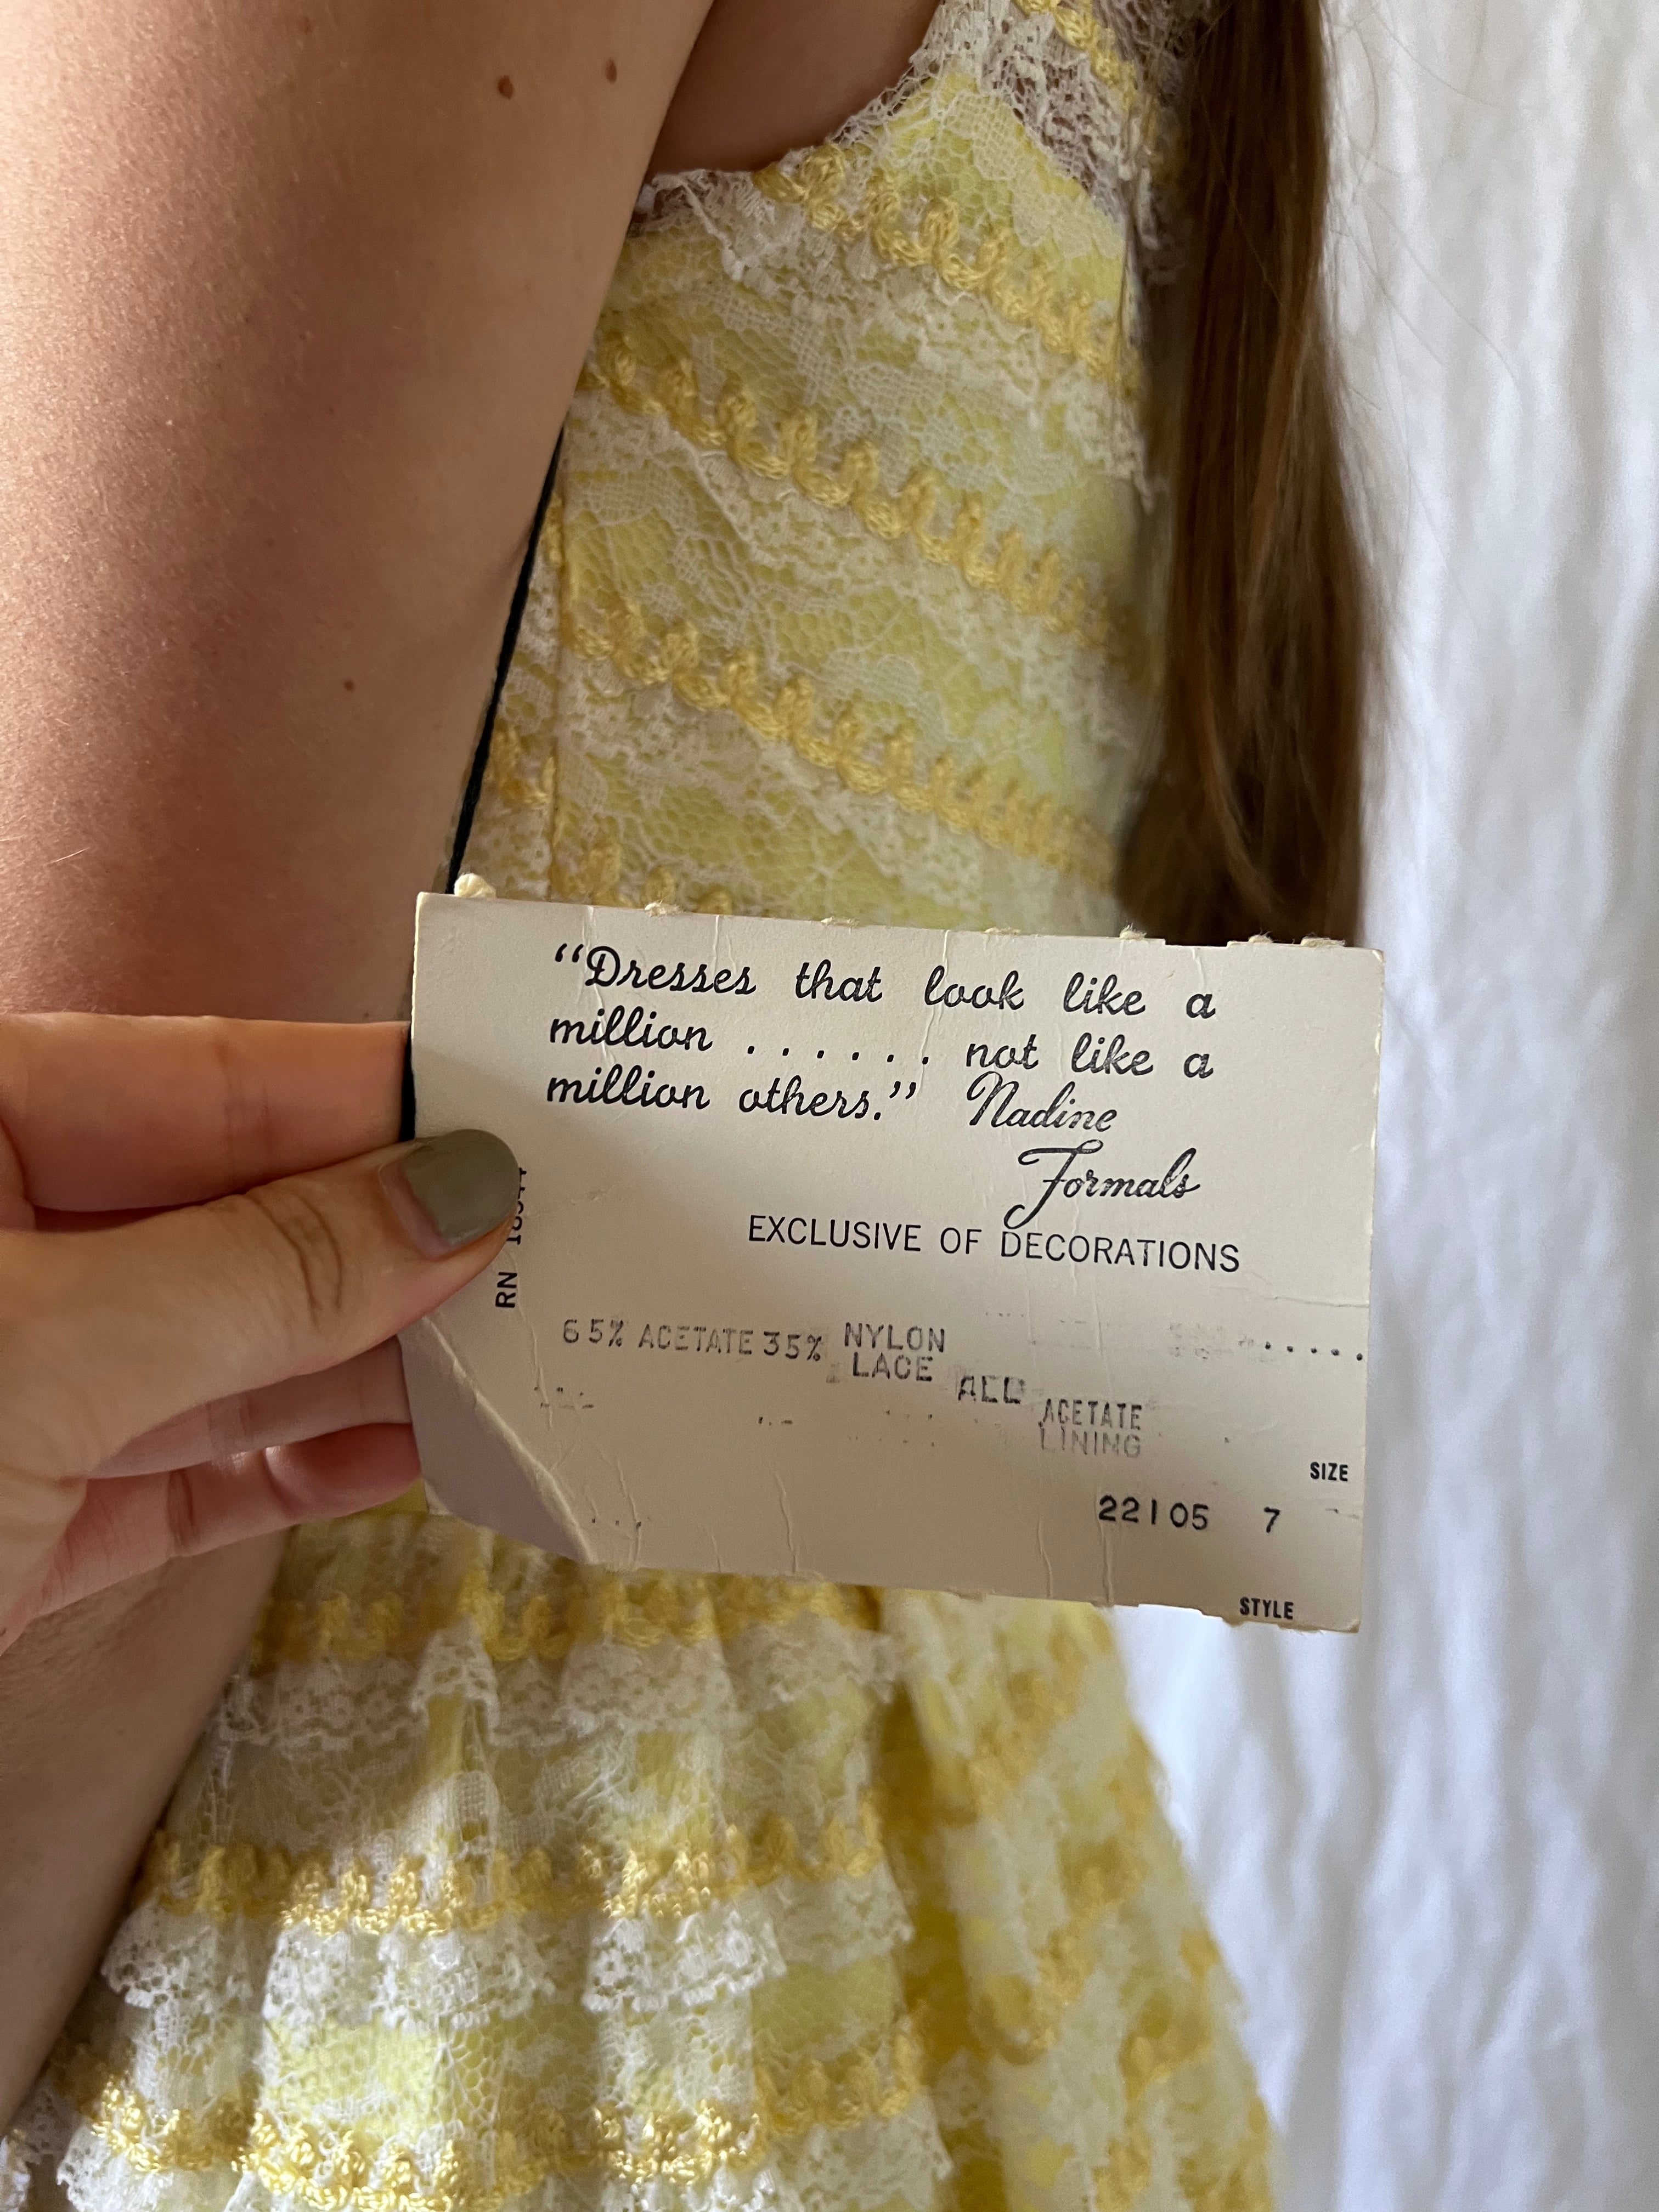 “Dresses that look like a
million . . . . . . not like a
million others.” Nadine
Formals
EXCLUSIVE OF DECORATIONS
RN
65% ACETATE 35% NYLON
LACE
ALL
ACETATE
LINING
SIZE
22105 7
STYLE